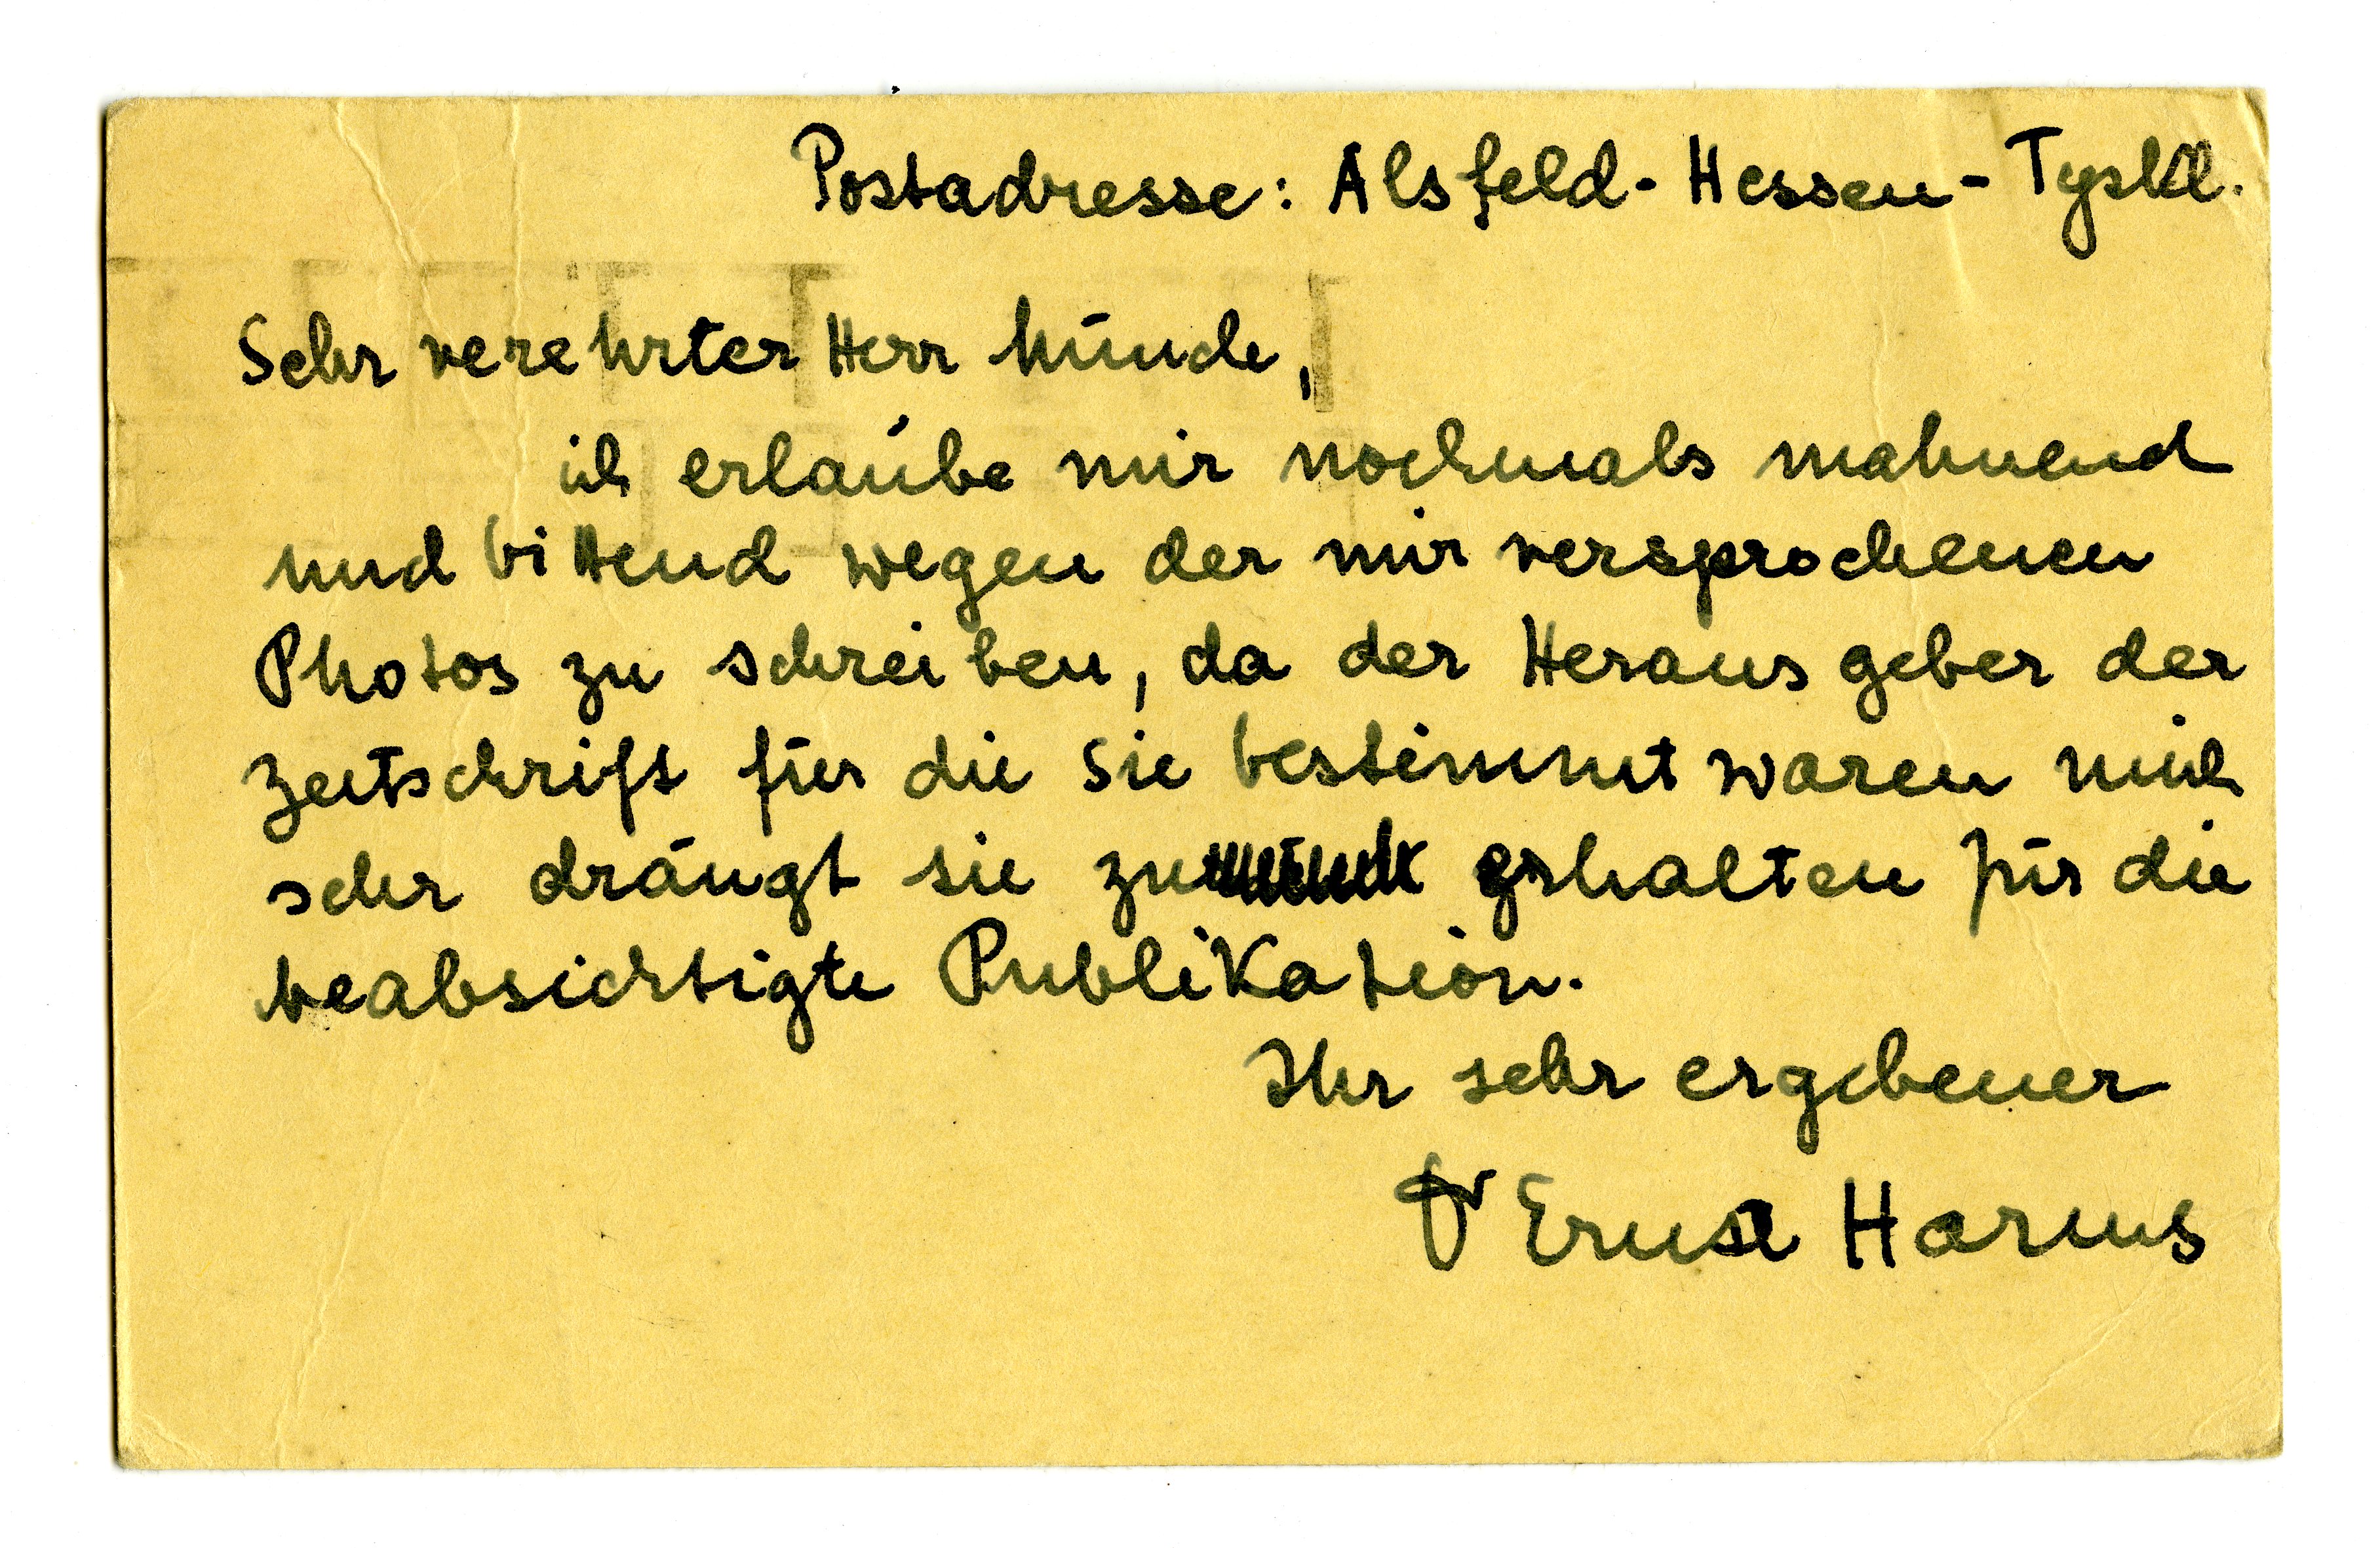 Postadresse: Alsfeld - Hessen - Tyskl.
Sehr verehrter Herr Münch,
ich erlaube mir nochmals mahnend
und bittend wegen der mir versprochenen
Photos zu schreiben, da der Herausgeber der
Zeitschrift für die sie bestimmt waren mich
sehr drängt sie zu erhalten für die
beabsichtigte Publikation.
Ihr sehr ergebener
Dr Ernst Harms